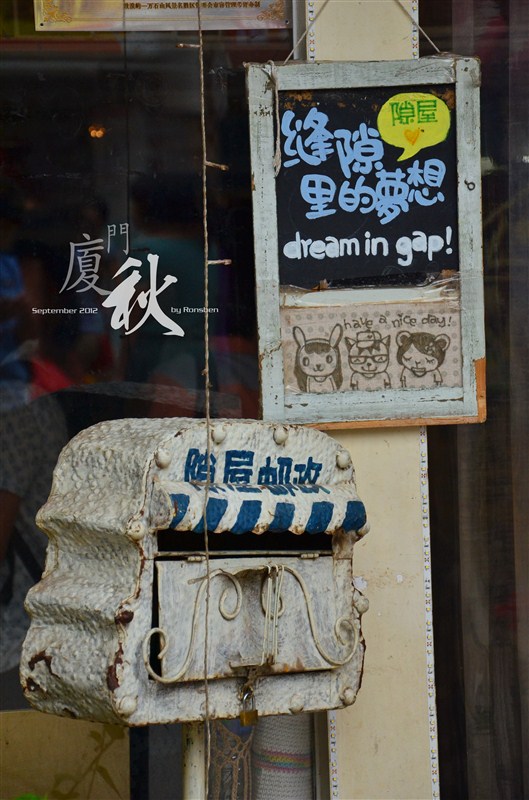 隙屋
缝隙
里的夢想
dream in gap!
have a nice day!
廈門
秋
September 2012
by Ronsben
隙屋邮政